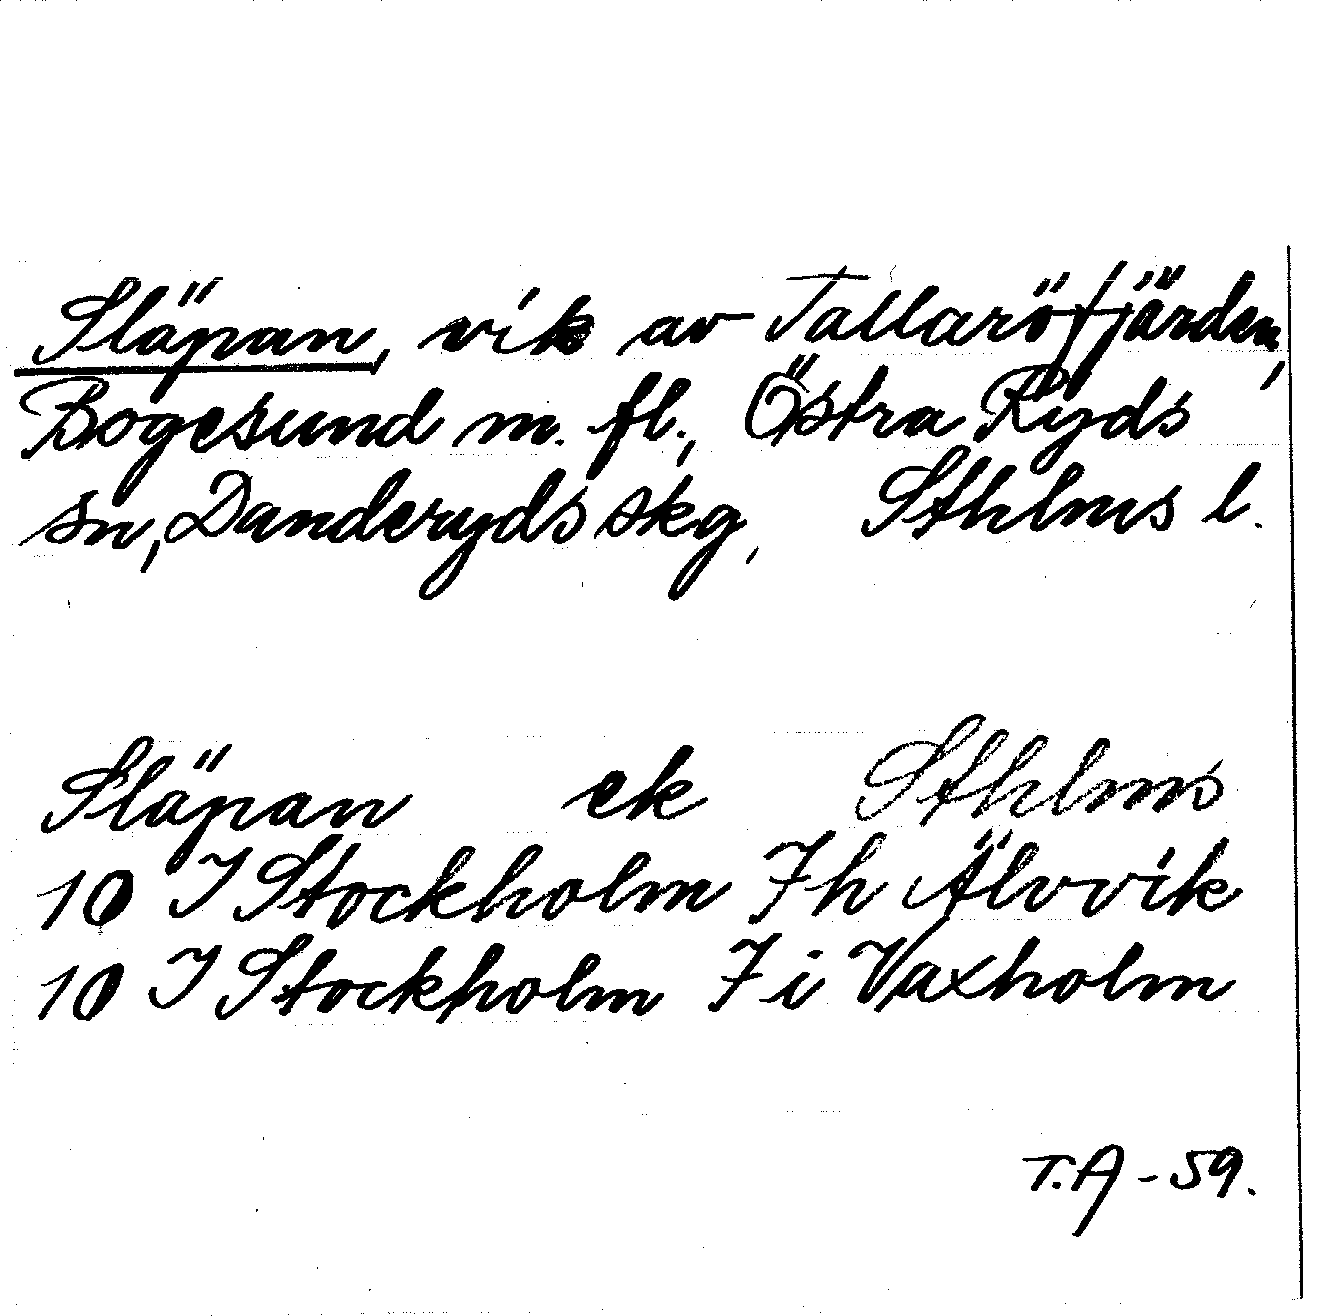 Släpan, vik av Tallaröfjärden,
Bogesund m. fl., Östra Ryds
sn, Danderyds skg, Sthlms l.
Släpan ek Sthlms
10 I Stockholm 7h Älvvik
10 I Stockholm 7i Vaxholm
T.A - 59.